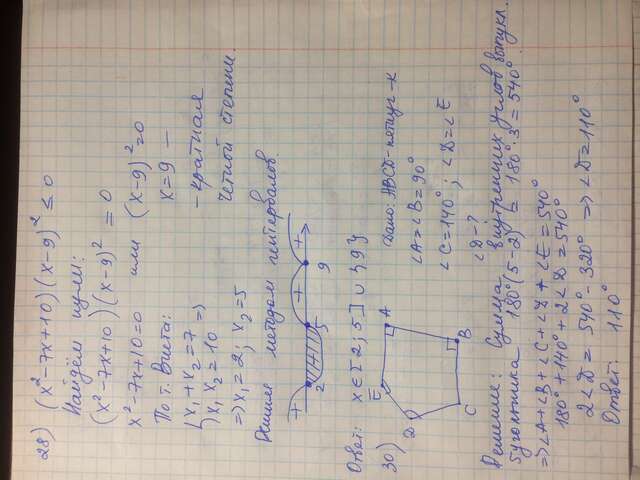 28) (x² - 7x + 10)(x - 9)² ≤ 0
Найдём нули:
(x² - 7x + 10)(x - 9)² = 0
x² - 7x + 10 = 0 или (x - 9)² = 0
По т. Виета: x = 9 —
{x₁ + x₂ = 7 =>
x₁ x₂ = 10
- кратная
чётной степени
=> x₁ = 2; x₂ = 5
Решим методом интервалов.
+ + +
2 5 9
Ответ: x ∈ [2; 5] ∪ {9}
30)
E A
D
C B
Дано: ABCD - пятиуг-к
∠A = ∠B = 90°
∠C = 140°; ∠D = ∠E
∠D - ?
Решение: Сумма внутренних углов выпукл.
5угольника 180°(5-2) = 180°·3 = 540°.
=> ∠A + ∠B + ∠C + ∠D + ∠E = 540°
180° + 140° + 2∠D = 540°
2∠D = 540° - 320° => ∠D = 110°
Ответ. 110°